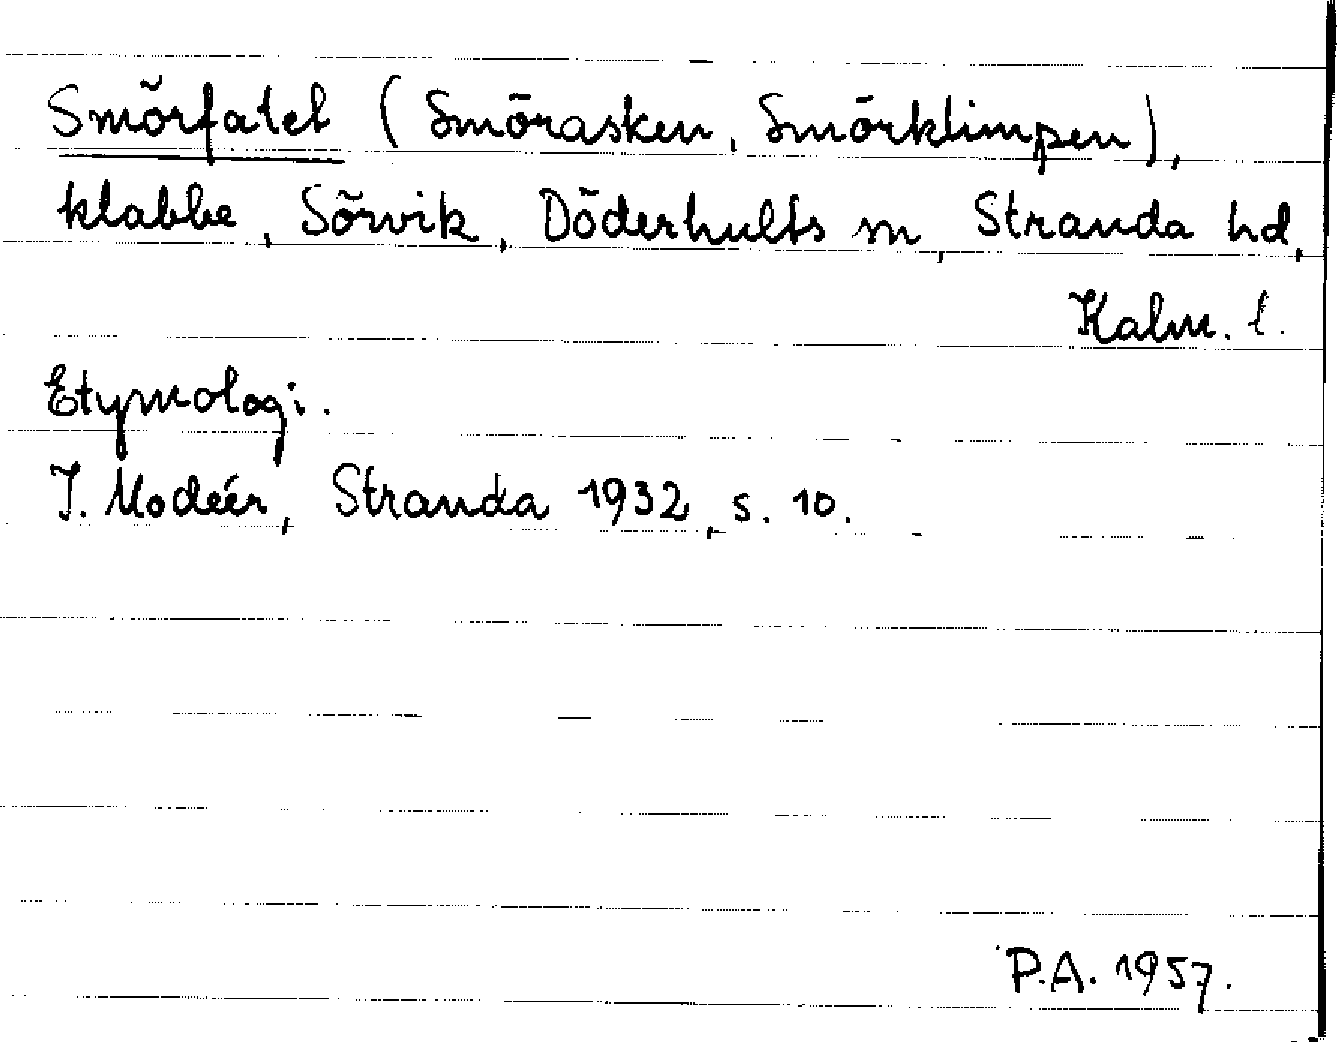 Smörfatet (Smörasken, Smörklimpen),
klabbe, Sörvik, Döderhults sn, Stranda hd,
Kalm. l.
Etymologi.
I. Modéer, Stranda 1932, s. 10.
P.A. 1957.